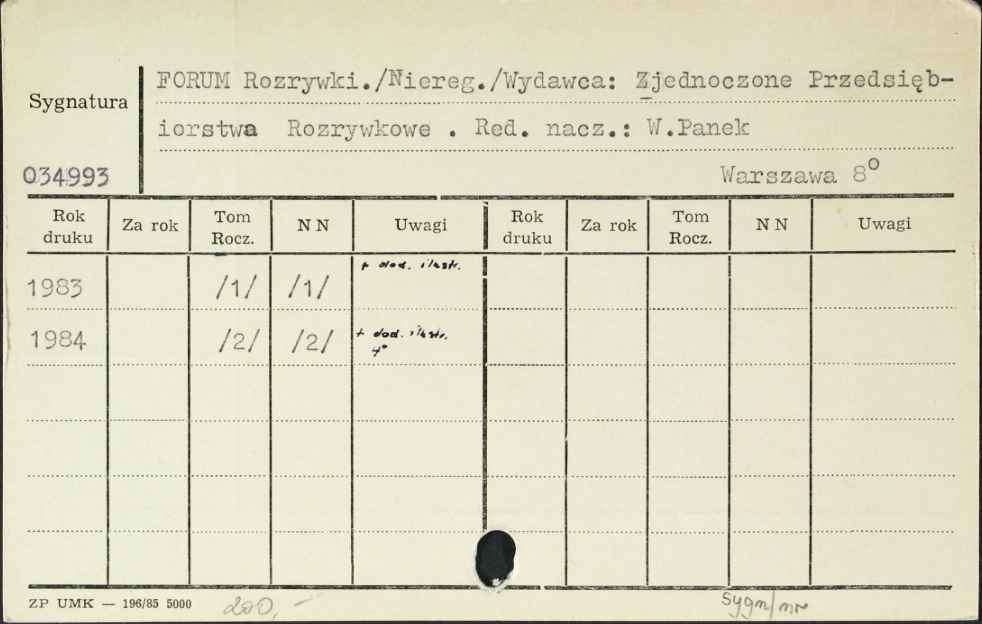 FORUM Rozrywki./Niereg./Wydawca: Zjednoczone Przedsięb-
Sygnatura
iorstwa Rozrywkowe . Red. nacz.: W.Panek
034993
Warszawa 8°
Rok druku Za rok Tom Rocz. N N Uwagi Rok druku Za rok Tom Rocz. N N Uwagi
1983 /1/ /1/ + dod. ilustr.
1984 /2/ /2/ + dod. ilustr.
4°
ZP UMK — 196/85 5000 200,- Sygn/nr